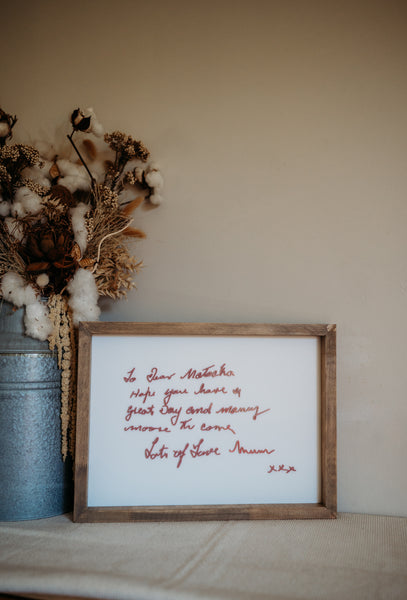 To Dear Natasha
Hope you have a
great Day and many
moore to come
Lots of Love Mum
xxx